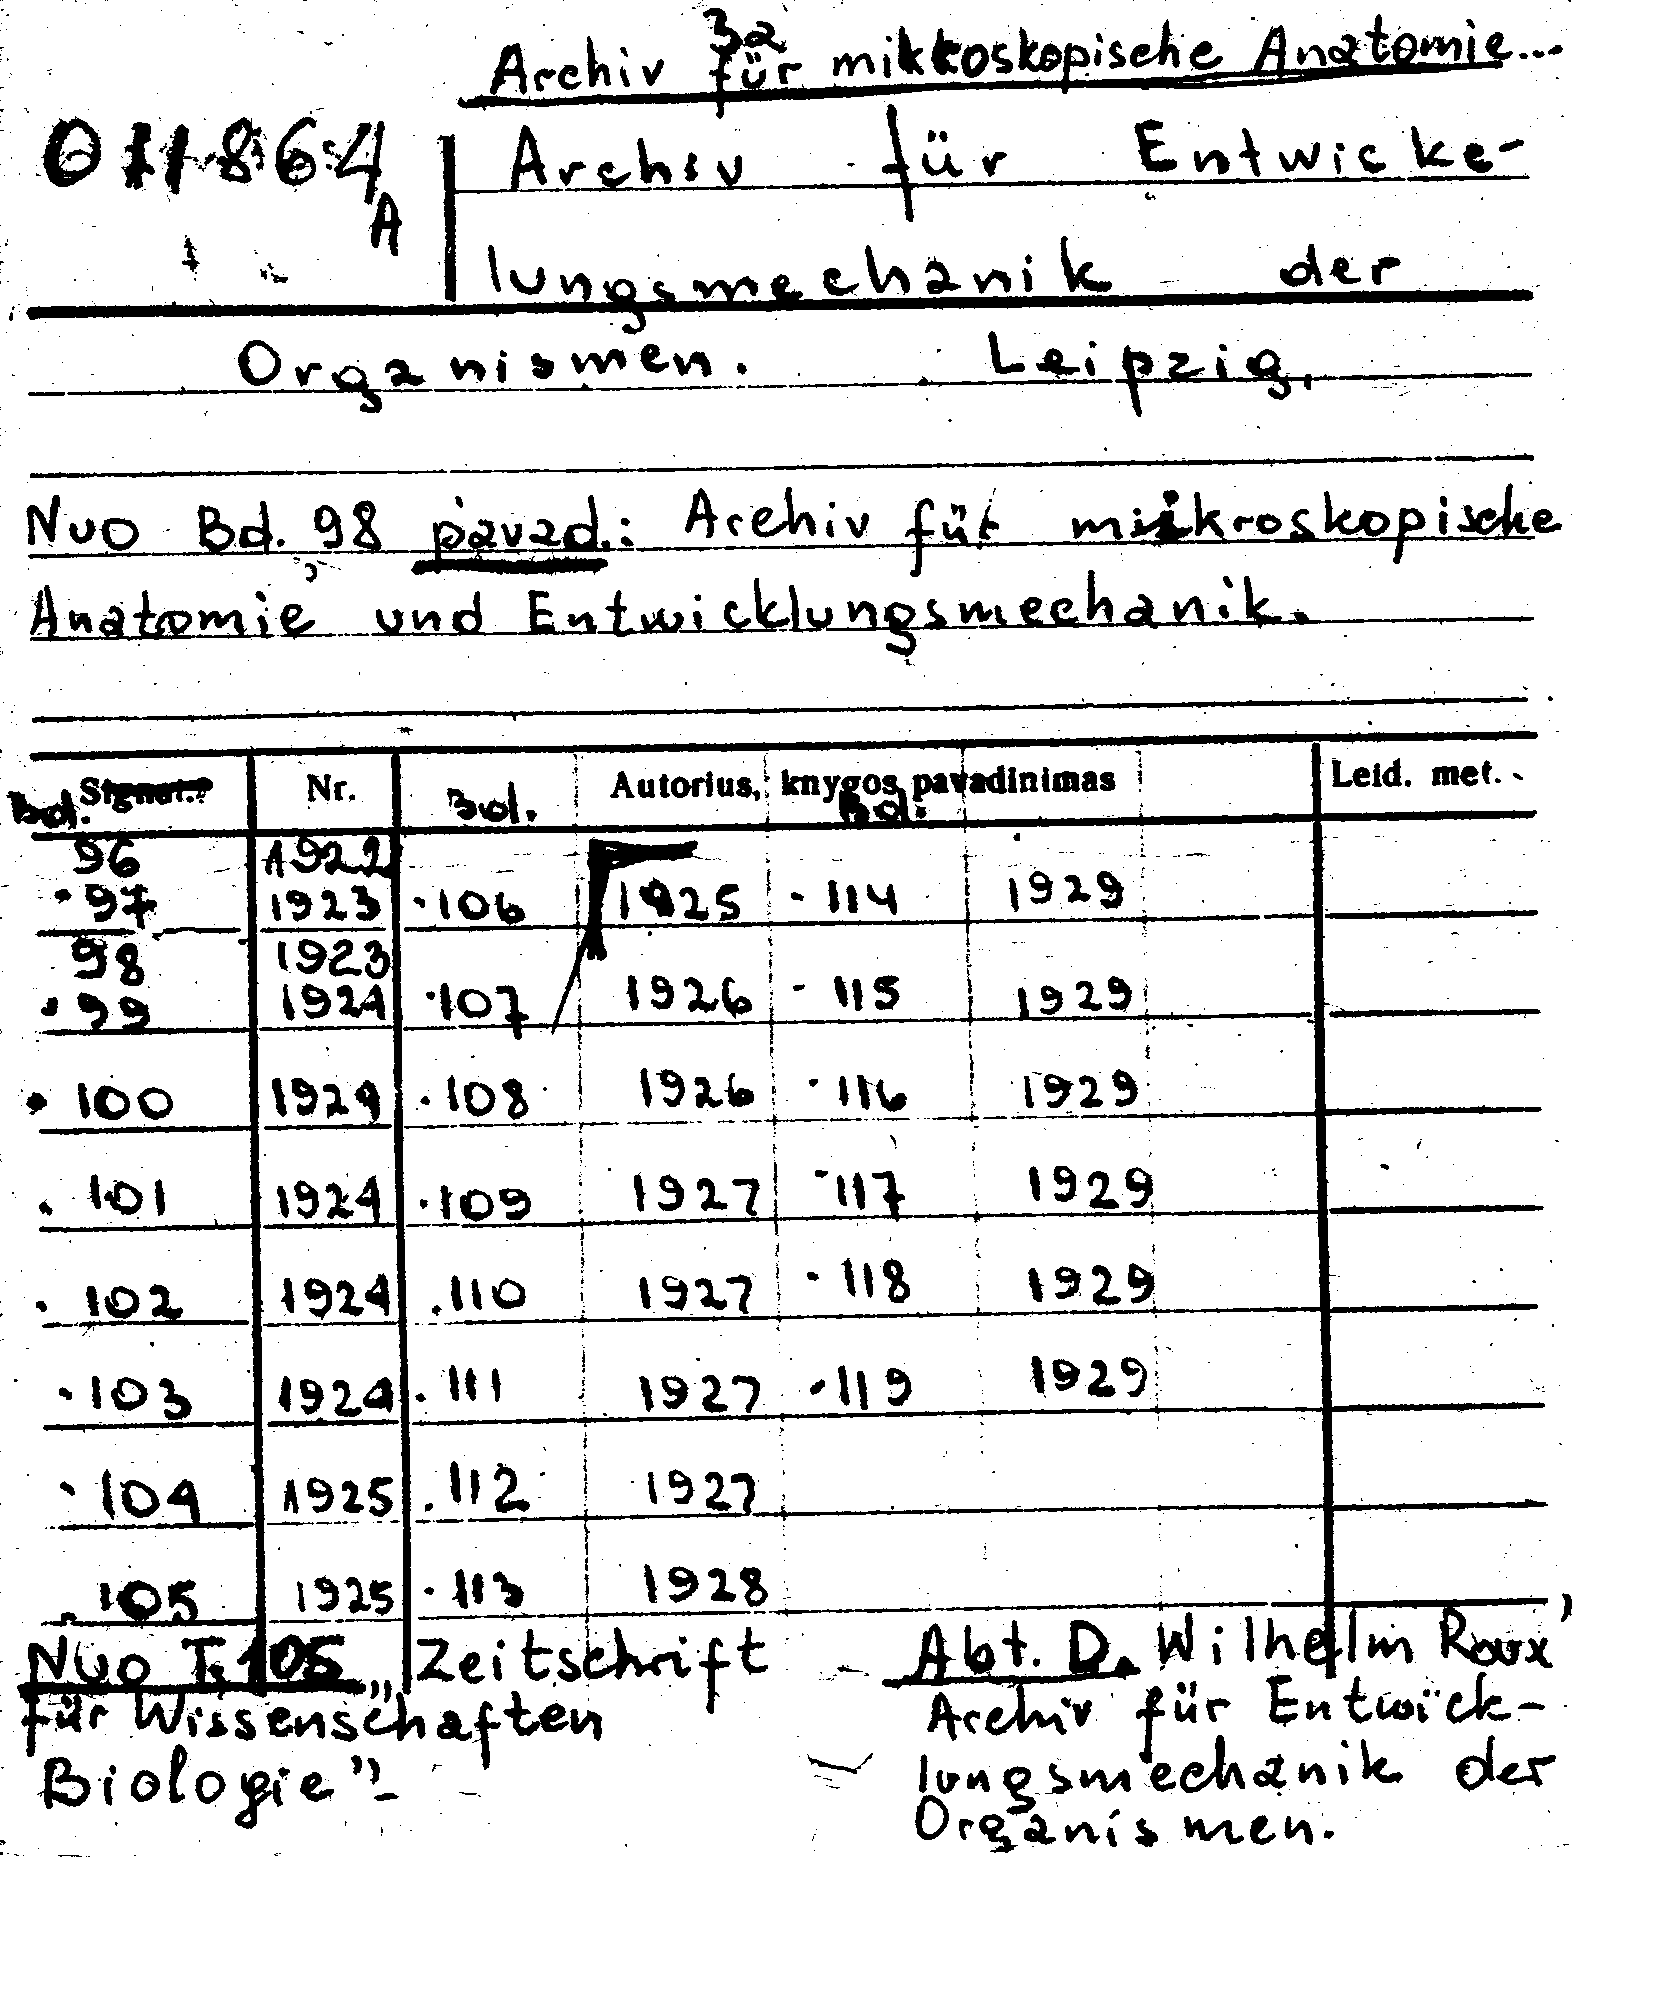 За
Archiv für mikroskopische Anatomie...
011864 Archiv für Entwicke-
A
lungsmechanik der
Organismen. Leipzig,
Nuo Bd. 98 pavad.: Archiv für mikroskopische
Anatomie und Entwicklungsmechanik.
Signat. Nr. Autorius, knygos pavadinimas Leid. met.
Bd. Bd. Bd.
96 1922
97 1923 106 1925 114 1929
98 1923
99 1924 107 1926 115 1929
100 1924 108 1926 116 1929
101 1924 109 1927 117 1929
102 1924 110 1927 118 1929
103 1924 111 1927 119 1929
104 1925 112 1927
105 1925 113 1928
Nuo T. 105 „Zeitschrift Abt. D. Wilhelm Roux'
für Wissenschaften Archiv für Entwick-
Biologie"- lungsmechanik der
Organismen.